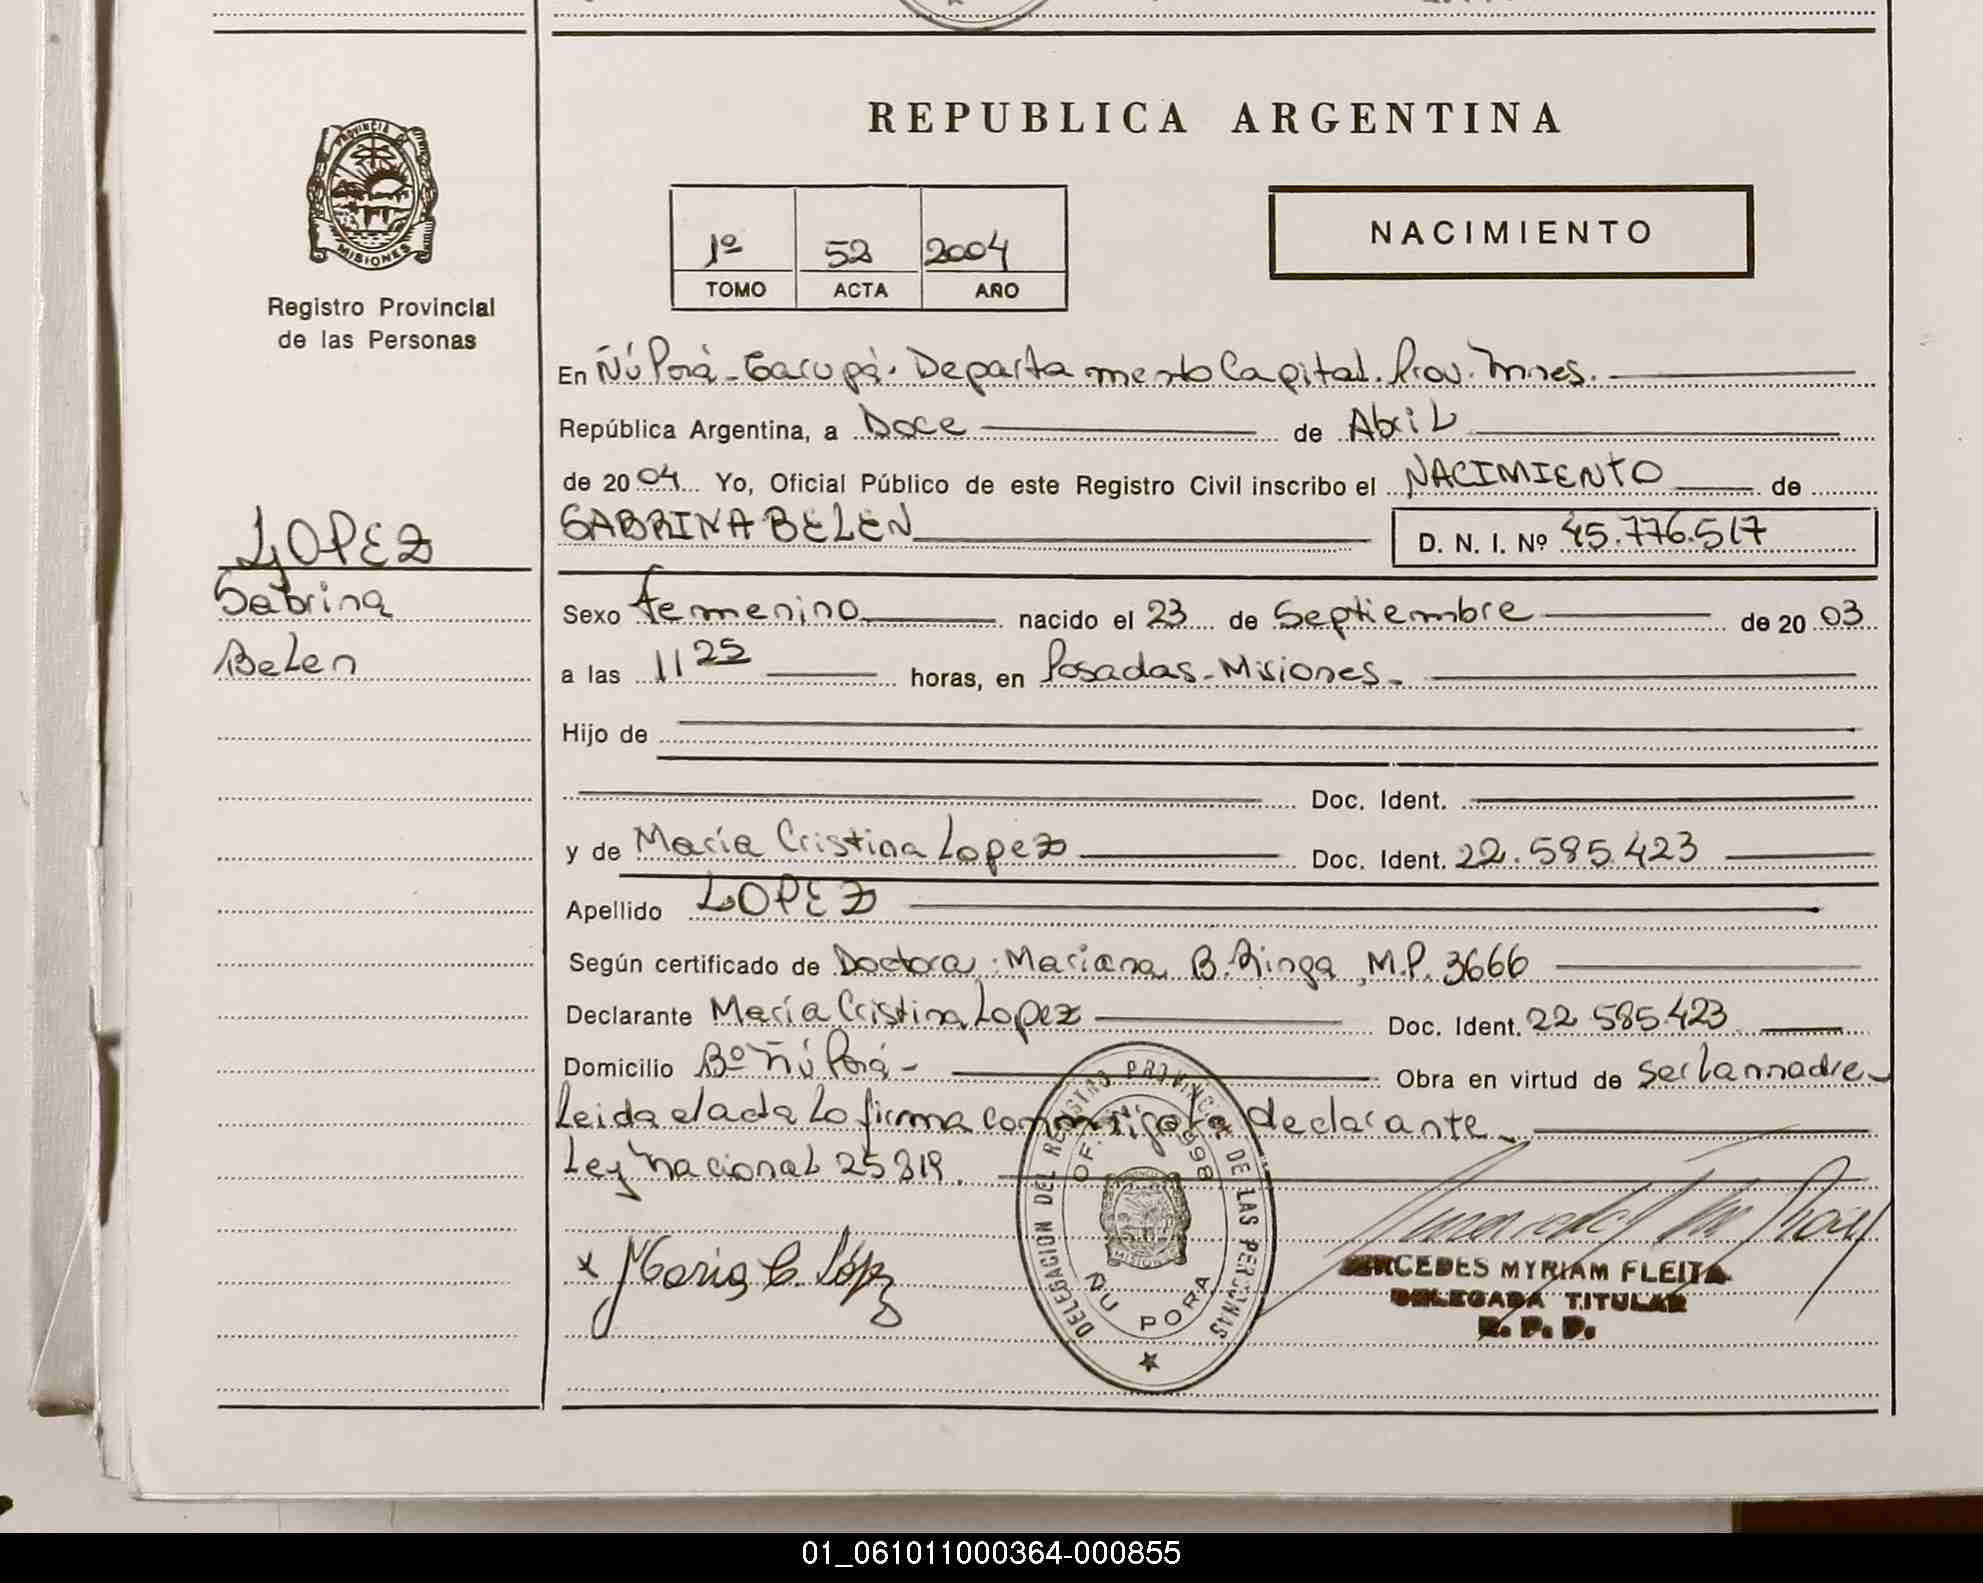 REPUBLICA ARGENTINA
PROVINCIA DE
MISIONES
Registro Provincial
de las Personas
1º 52 2004
TOMO ACTA AÑO
NACIMIENTO
En Ñú Porá - Garupá. Departamento Capital. Prov. Mnes.
República Argentina, a Doce de Abril
de 2004 Yo, Oficial Público de este Registro Civil inscribo el NACIMIENTO de
LOPEZ
Sabrina
Belen
SABRINA BELEN D. N. I. Nº 45.776.517
Sexo femenino nacido el 23 de Septiembre de 2003
a las 11 25 horas, en Posadas - Misiones -
Hijo de
Doc. Ident.
y de María Cristina Lopez Doc. Ident. 22.585.423
Apellido LOPEZ
Según certificado de Doctora: Mariana B. Ringa, M.P. 3666
Declarante María Cristina Lopez Doc. Ident. 22 585.423
Domicilio Bº Ñú Porá - Obra en virtud de ser la madre -
Leida el acta lo firma conmigo la declarante
Ley nacional 25819.
x Maria C. Lópz
DELEGACION DEL REGISTRO PROVINCIAL DE LAS PERSONAS
OF. 998
MISIONES
ÑU PORA
MERCEDES MYRIAM FLEITA
DELEGADA TITULAR
R. P. P.
01_061011000364-000855